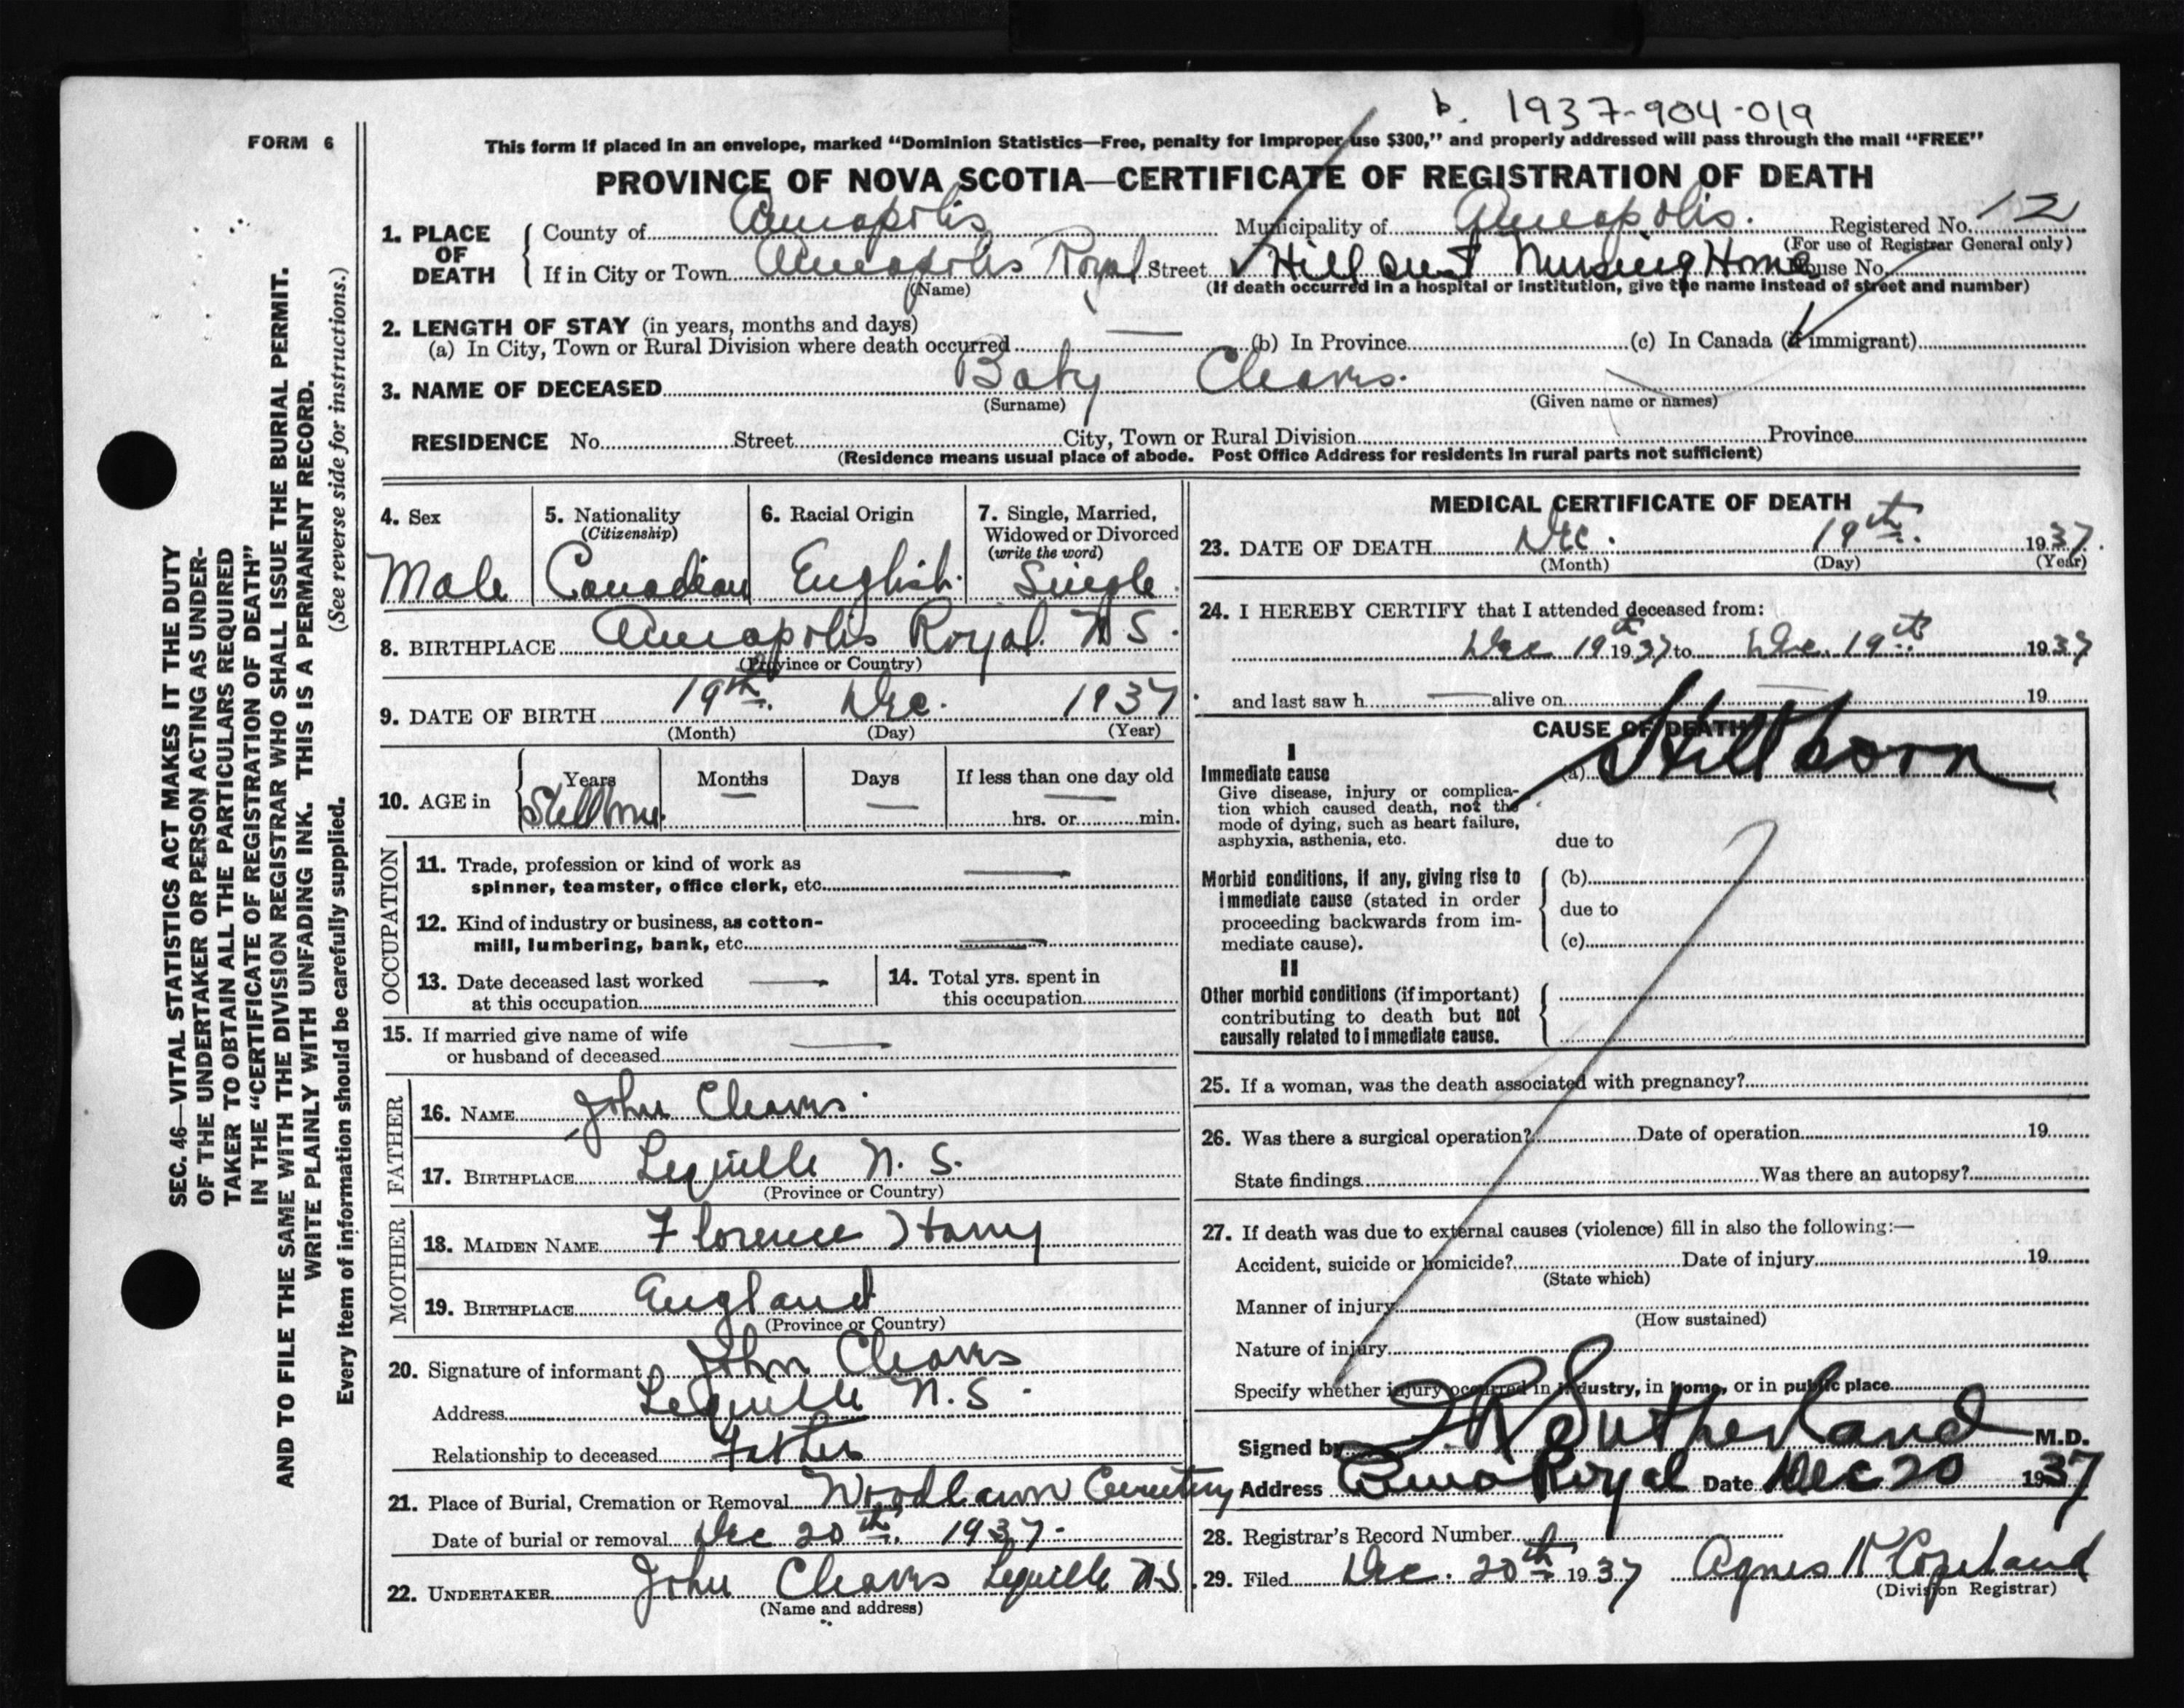 b. 1937-904-019
FORM 6
This form if placed in an envelope, marked "Dominion Statistics—Free, penalty for improper use $300," and properly addressed will pass through the mail "FREE"
PROVINCE OF NOVA SCOTIA—CERTIFICATE OF REGISTRATION OF DEATH
1. PLACE OF DEATH
County of Annapolis Municipality of Annapolis. Registered No. 12
(For use of Registrar General only)
If in City or Town Annapolis Royal Street Hillcrest Nursing Home House No.
(Name) (If death occurred in a hospital or institution, give the name instead of street and number)
2. LENGTH OF STAY (in years, months and days)
(a) In City, Town or Rural Division where death occurred — (b) In Province (c) In Canada (if immigrant)
3. NAME OF DECEASED Baby Cleaves.
(Surname) (Given name or names)
RESIDENCE No. Street City, Town or Rural Division Province
(Residence means usual place of abode. Post Office Address for residents in rural parts not sufficient)
4. Sex
Male
5. Nationality
(Citizenship)
Canadian
6. Racial Origin
English.
7. Single, Married,
Widowed or Divorced
(write the word)
Single.
8. BIRTHPLACE Annapolis Royal. N S.
(Province or Country)
9. DATE OF BIRTH 19th. Dec. 1937
(Month) (Day) (Year)
10. AGE in
Years Months Days If less than one day old
Stillborn. — — —
hrs. or min.
OCCUPATION
11. Trade, profession or kind of work as
spinner, teamster, office clerk, etc. —
12. Kind of industry or business, as cotton-
mill, lumbering, bank, etc. —
13. Date deceased last worked —
at this occupation
14. Total yrs. spent in
this occupation
15. If married give name of wife —
or husband of deceased
FATHER
16. NAME John Cleaves.
17. BIRTHPLACE Lequille N. S.
(Province or Country)
MOTHER
18. MAIDEN NAME Florence
19. BIRTHPLACE England
(Province or Country)
20. Signature of informant John Cleaves
Address Lequille N.S.
Relationship to deceased Father
21. Place of Burial, Cremation or Removal Woodlawn Cemetery
Date of burial or removal Dec 20th. 1937.
22. UNDERTAKER John Cleaves Lequille N.S.
(Name and address)
MEDICAL CERTIFICATE OF DEATH
23. DATE OF DEATH Dec. 19th. 1937.
(Month) (Day) (Year)
24. I HEREBY CERTIFY that I attended deceased from:
Dec 19th 1937 to Dec. 19th 1937
and last saw h — alive on — 19
CAUSE OF DEATH
I
Immediate cause (a) Stillborn
Give disease, injury or complica-
tion which caused death, not the
mode of dying, such as heart failure,
asphyxia, asthenia, etc. due to
Morbid conditions, if any, giving rise to (b)
immediate cause (stated in order due to
proceeding backwards from im-
mediate cause). (c)
II
Other morbid conditions (if important)
contributing to death but not
causally related to immediate cause.
25. If a woman, was the death associated with pregnancy?
26. Was there a surgical operation? Date of operation 19
State findings Was there an autopsy?
27. If death was due to external causes (violence) fill in also the following:—
Accident, suicide or homicide? Date of injury 19
(State which)
Manner of injury
(How sustained)
Nature of injury
Specify whether injury occurred in industry, in home, or in public place
Signed by Sutherland M.D.
Address Anna Royal Date Dec 20 1937
28. Registrar's Record Number
29. Filed Dec. 20th 1937 Agnes Copeland
(Division Registrar)
SEC. 46—VITAL STATISTICS ACT MAKES IT THE DUTY
OF THE UNDERTAKER OR PERSON ACTING AS UNDER-
TAKER TO OBTAIN ALL THE PARTICULARS REQUIRED
IN THE "CERTIFICATE OF REGISTRATION OF DEATH"
AND TO FILE THE SAME WITH THE DIVISION REGISTRAR WHO SHALL ISSUE THE BURIAL PERMIT.
WRITE PLAINLY WITH UNFADING INK. THIS IS A PERMANENT RECORD.
Every item of information should be carefully supplied. (See reverse side for instructions.)